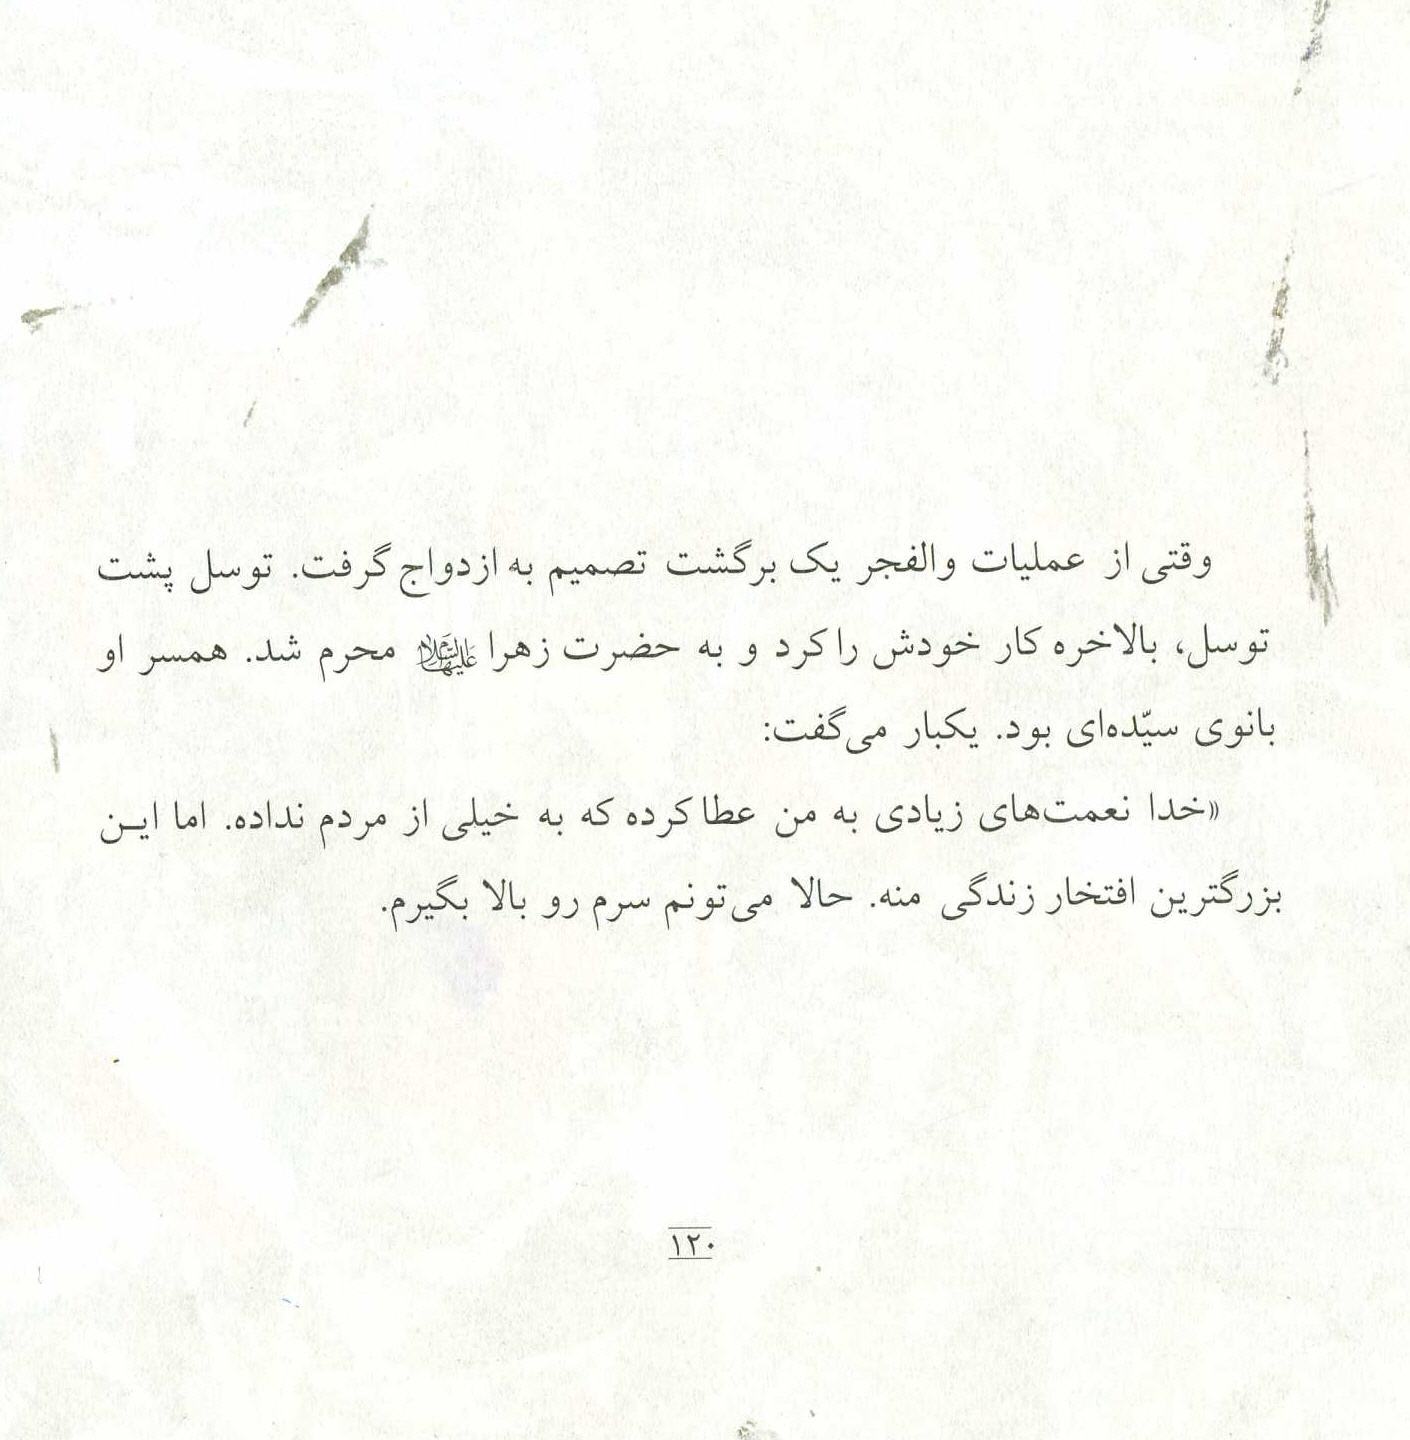 وقتی از عملیات والفجر یک برگشت تصمیم به ازدواج گرفت. توسل پشت
توسل، بالاخره کار خودش را کرد و به حضرت زهرا علیهاالسلام محرم شد. همسر او
بانوی سیّده‌ای بود. یکبار می‌گفت:
«خدا نعمت‌های زیادی به من عطا کرده که به خیلی از مردم نداده. اما ایـن
بزرگترین افتخار زندگی منه. حالا می‌تونم سرم رو بالا بگیرم.
۱۲۰